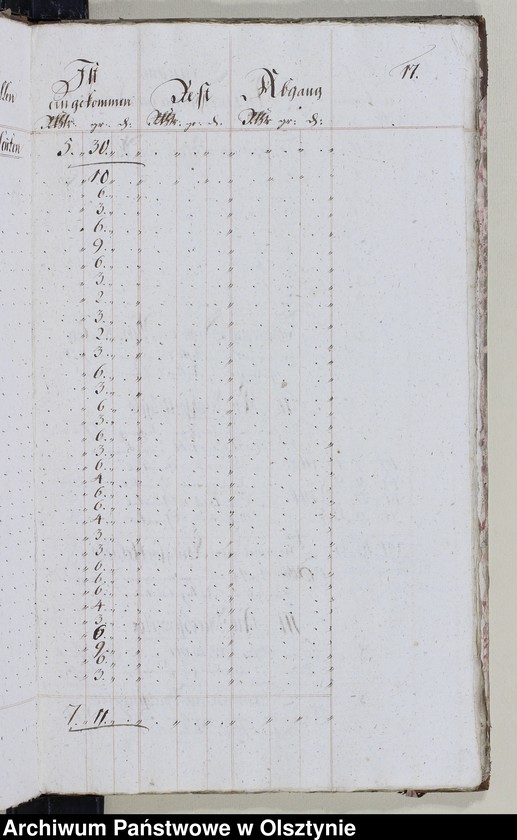 17.
Ist eingekommen
Rest
Abgang
Rthr. gr: d:
Rthr. gr: d.
Rthr gr: d:
5. 30. "
" 10 "
" 6. "
" 3. "
" 6. "
" 9 "
" 6. "
" 3. "
" 2. "
" 3. "
" 2. "
" 3. "
" 6. "
" 3. "
" 6. "
" 3. "
" 6. "
" 3. "
" 6. "
" 4. "
" 6. "
" 6. "
" 4. "
" 3. "
" 3. "
" 6. "
" 6. "
" 6. "
" 4. "
" 3. "
" 6. "
" 9. "
" 6. "
" 3. "
7. 11. "
Archiwum Państwowe w Olsztynie